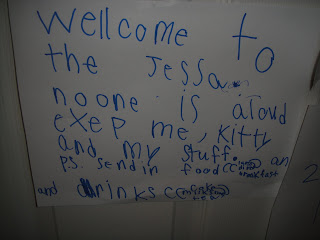 wellcome to
the Jessa
noone is aloud
exep me, Kitty
and my stuff.
PS. send in food
and drinks